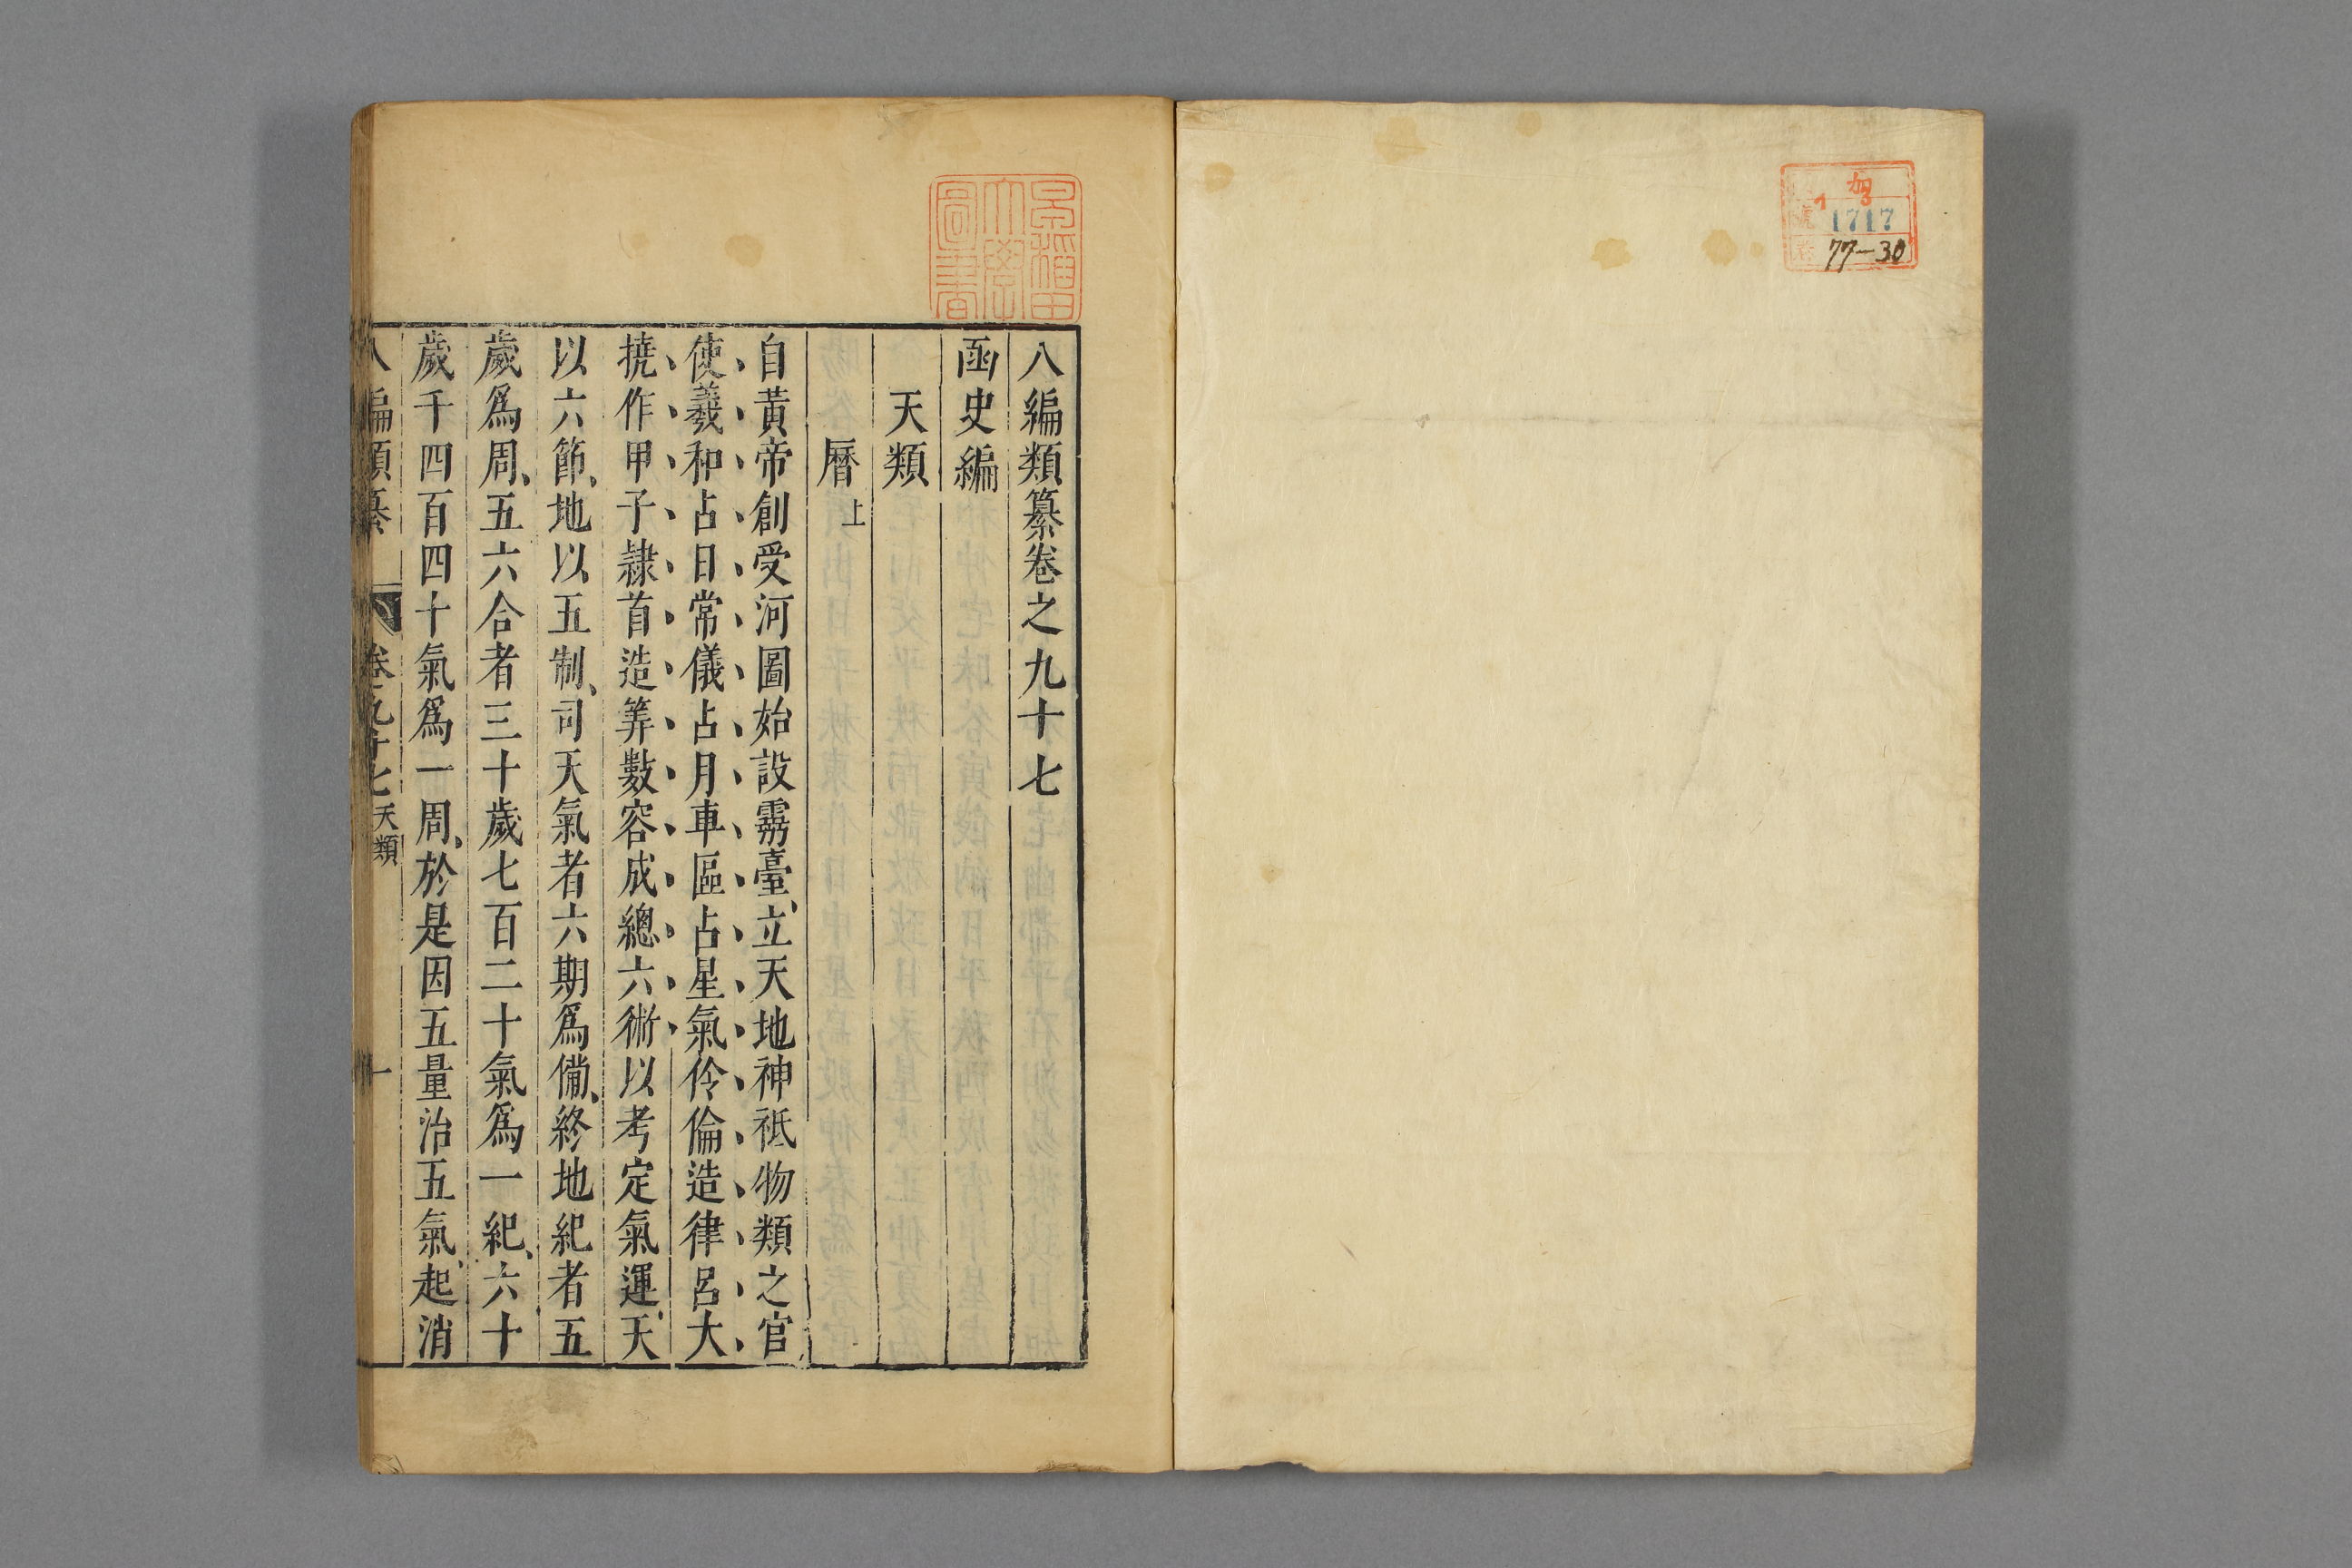 1717
77-30
早稲田
大學
圖書
八編類纂卷之九十七
函史編
天類
曆上
自黃帝創受河圖始設靈臺、立天地神祗物類之官
使羲和占日常儀占月車區占星氣伶倫造律呂大
撓作甲子隷首造筭數容成總六術以考定氣運、天
以六節、地以五制、司天氣者六期爲備、終地紀者五
歲爲周、五六合者三十歲七百二十氣爲一紀、六十
歲千四百四十氣爲一周、於是因五量治五氣、起消
八編類纂 卷九十七 天類 一